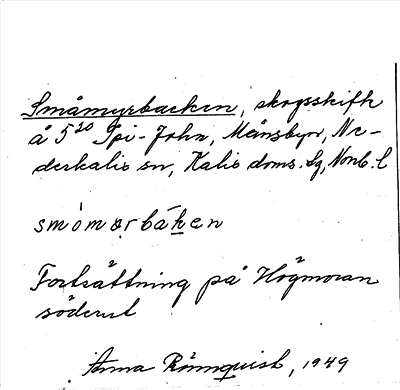 Småmyrbacken, skogsskifte
å 5²⁰ Spi-John, Månsbyn, Ne-
derkalix sn, Kalix doms. lg, Norrb. l
smòmørbáken
Fortsättning på Högmoran
söderut
Anna Rönnquist, 1949